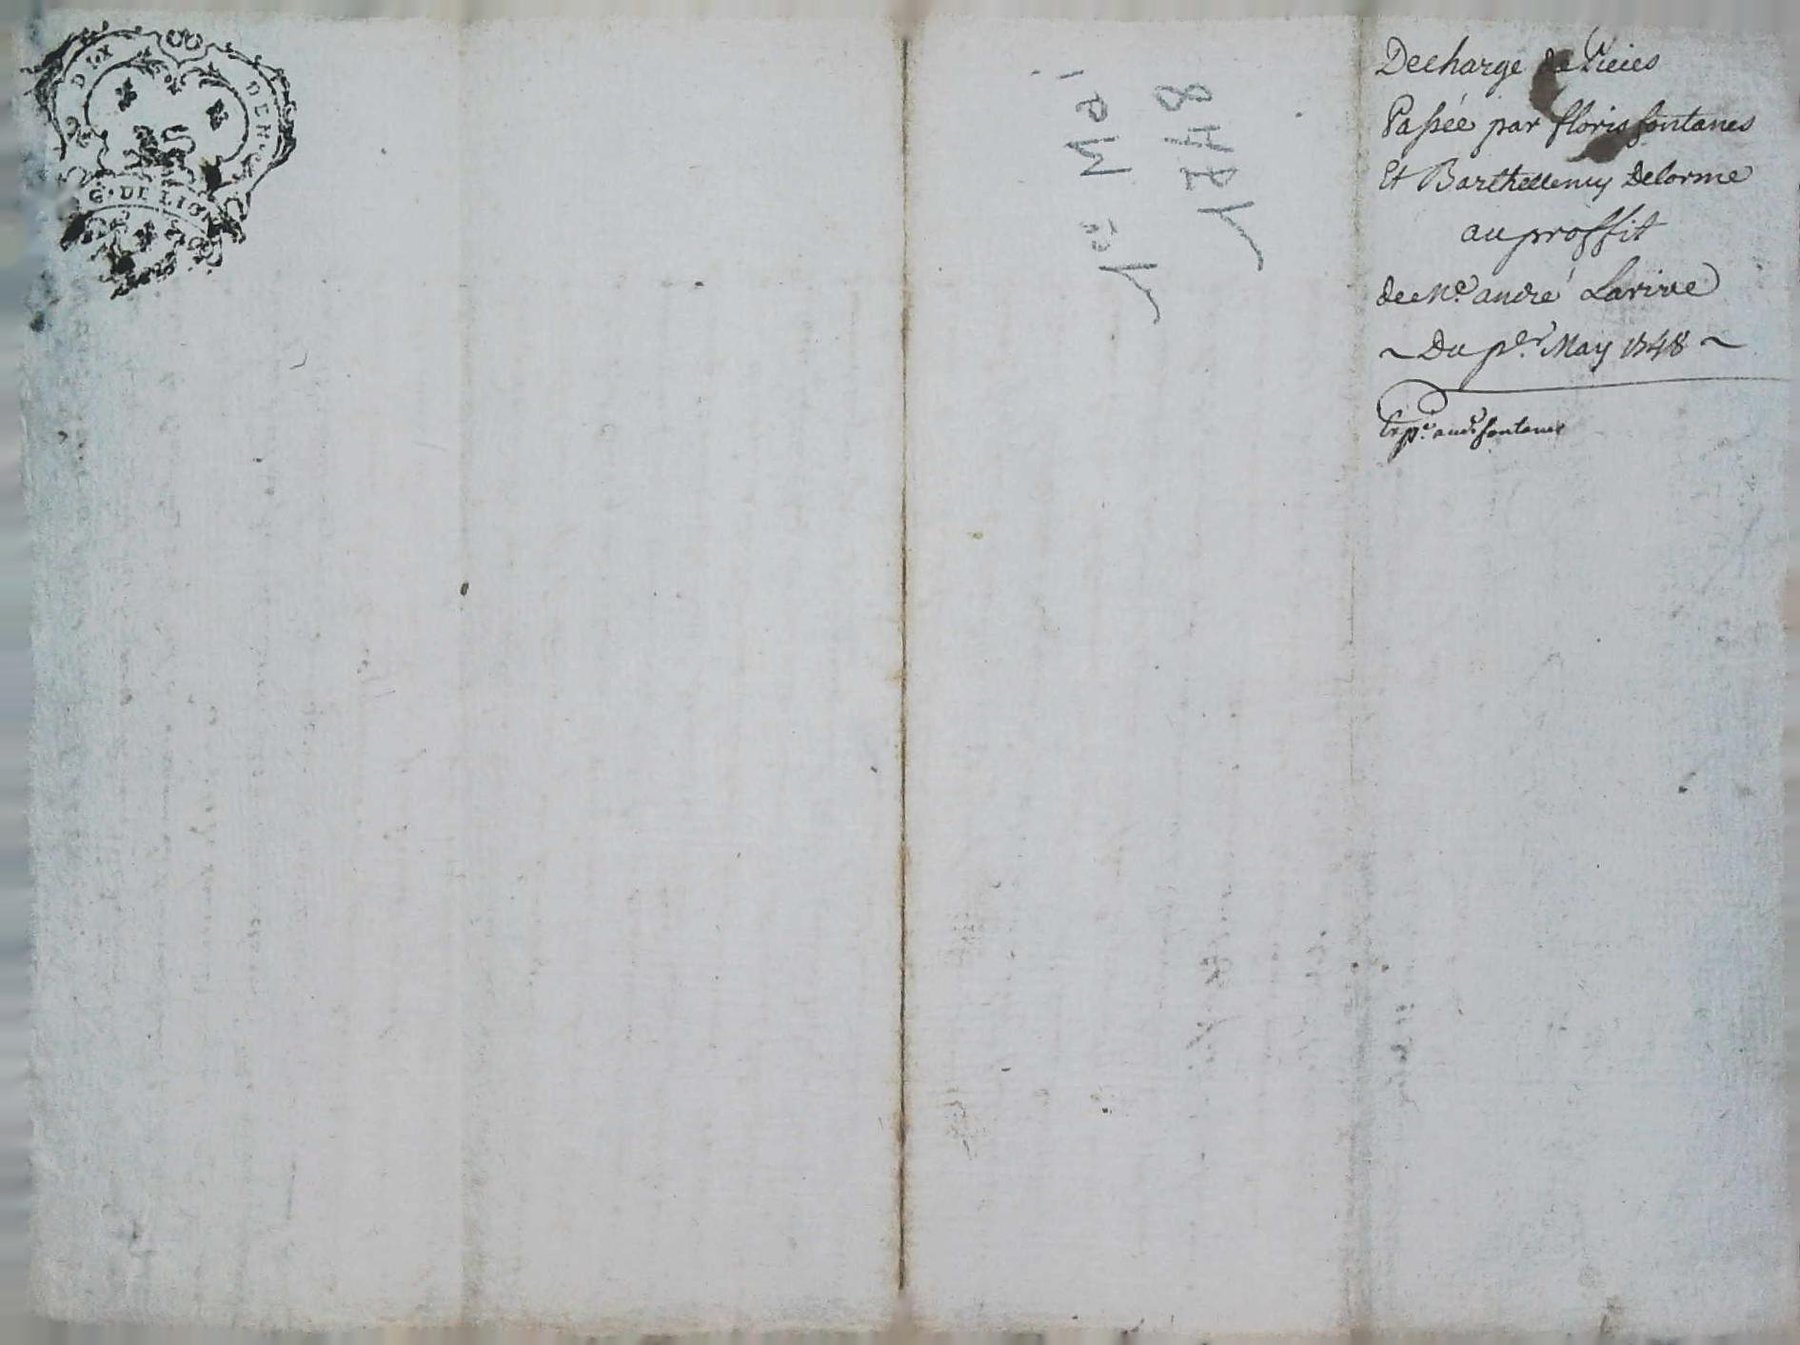 DIX DEN.
G. DE LION
1er Mai
1748
Decharge de Pieies
Passée par floris fontanes
Et Barthellemy Delorme
au proffit
de Me. andré Larive
~ Du per. May 1748 ~
Exp.e fontanes